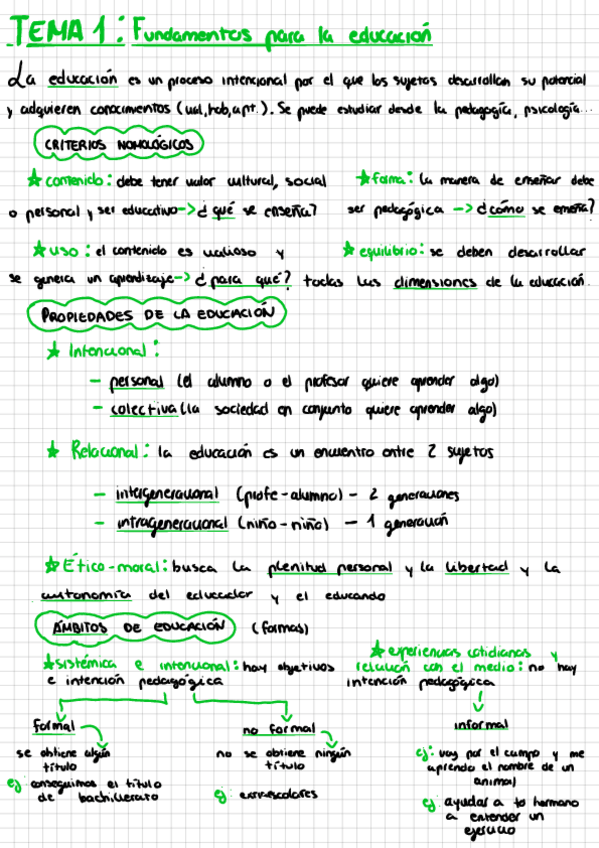 TEMA 1: Fundamentos para la educación
La educación es un proceso intencional por el que los sujetos desarrollan su potencial
y adquieren conocimientos (val, hab, apt.). Se puede estudiar desde la pedagogía, psicología...
CRITERIOS NOMOLÓGICOS
★ contenido: debe tener valor cultural, social
o personal y ser educativo -> ¿qué se enseña?
★ forma: la manera de enseñar debe
ser pedagógica -> ¿cómo se enseña?
★ uso: el contenido es valioso y
se genera un aprendizaje -> ¿para qué?
★ equilibrio: se deben desarrollar
todas las dimensiones de la educación.
PROPIEDADES DE LA EDUCACIÓN
★ Intencional:
- personal (el alumno o el profesor quiere aprender algo)
- colectiva (la sociedad en conjunto quiere aprender algo)
★ Relacional: la educación es un encuentro entre 2 sujetos
- intergeneracional (profe-alumno) - 2 generaciones
- intrageneracional (niño-niño) - 1 generación
★ Ético-moral: busca la plenitud personal y la libertad y la
autonomía del educador y el educando
ÁMBITOS DE EDUCACIÓN (formas)
★ sistémica e intencional: hay objetivos
e intención pedagógica
★ experiencias cotidianas y
relación con el medio: no hay
intención pedagógica
formal
se obtiene algún
título
ej: conseguimos el título
de bachillerato
no formal
no se obtiene ningún
título
ej: extraescolares
informal
ej: voy por el campo y me
aprendo el nombre de un
animal
ej: ayudar a tu hermano
a entender un
ejercicio